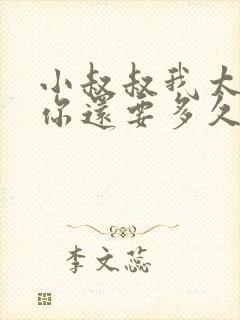 小叔叔我太
你還要多久
李文蕊